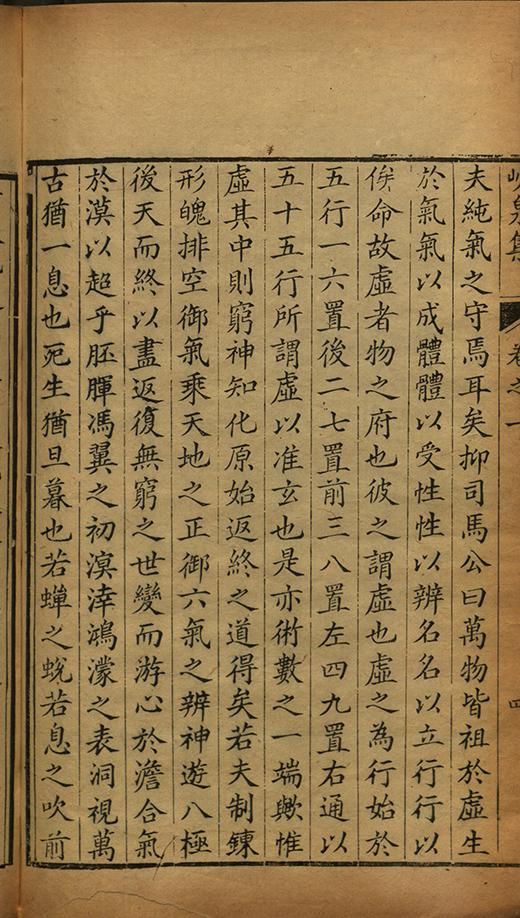 峴泉集
卷之一
四
夫純氣之守焉耳矣抑司馬公曰萬物皆祖於虛生
於氣氣以成體體以受性性以辨名名以立行行以
俟命故虛者物之府也彼之謂虛也虛之為行始於
五行一六置後二七置前三八置左四九置右通以
五十五行所謂虛以准玄也是亦術數之一端歟惟
虛其中則窮神知化原始返終之道得矣若夫制鍊
形魄排空御氣乘天地之正御六氣之辨神遊八極
後天而終以盡返復無窮之世變而游心於澹合氣
於漠以超乎胚腪馮翼之初溟涬鴻濛之表洞視萬
古猶一息也死生猶旦暮也若蟬之蛻若息之吹前